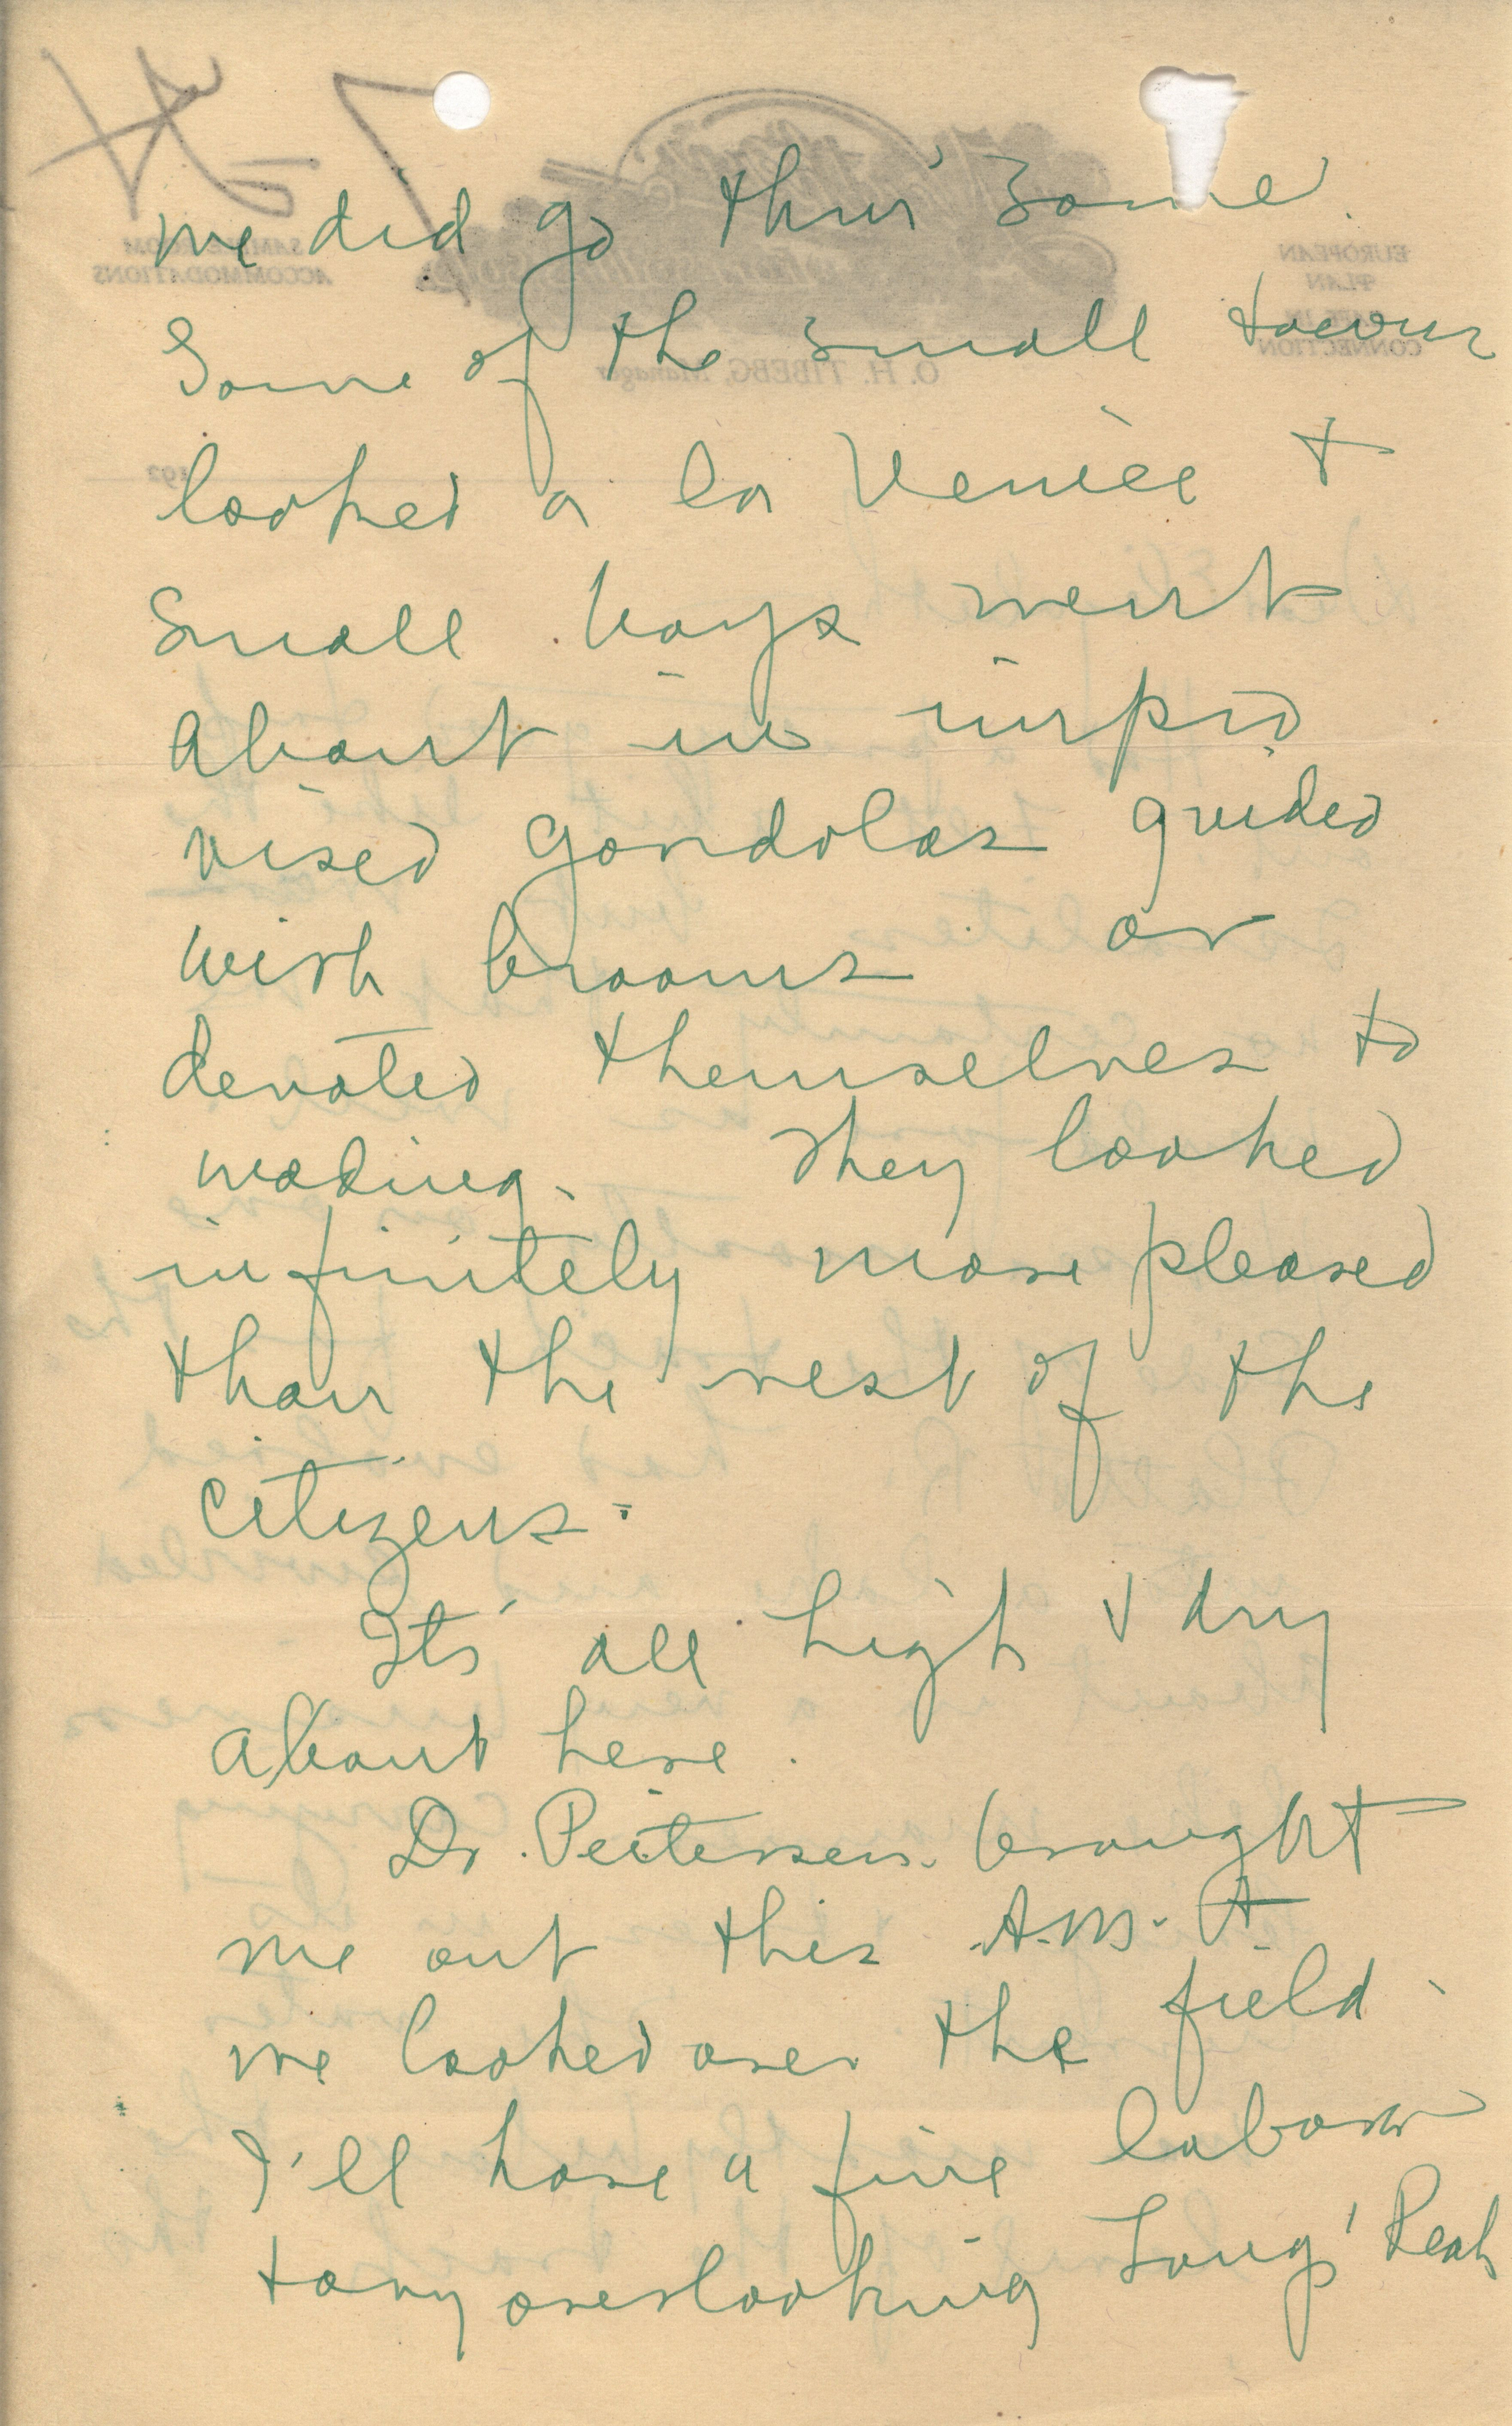 we did go thru' some.
Some of the small towns
looked a la Venice &
small boys went
about in impro
vised gondolas guided
with brooms or
devoted themselves to
wading. They looked
infinitely more pleased
than the rest of the
citizens.
Its' all high & dry
about here.
Dr. Peitersen brought
me out this A.M. &
we looked over the field.
I'll have a fine labora
tory overlooking Long's Peak
SAMPLE ROOM
ACCOMMODATIONS
EUROPEAN
PLAN
CONNECTION
O. H. TIBERG, Manager
192